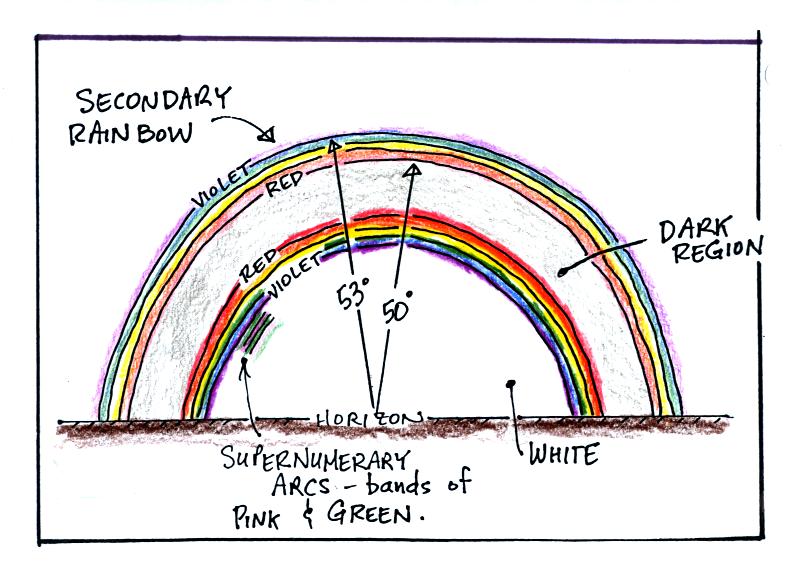 SECONDARY
RAINBOW
VIOLET
RED
DARK
REGION
RED
VIOLET
53°
50°
HORIZON
SUPERNUMERARY
ARCS - bands of
PINK & GREEN.
WHITE